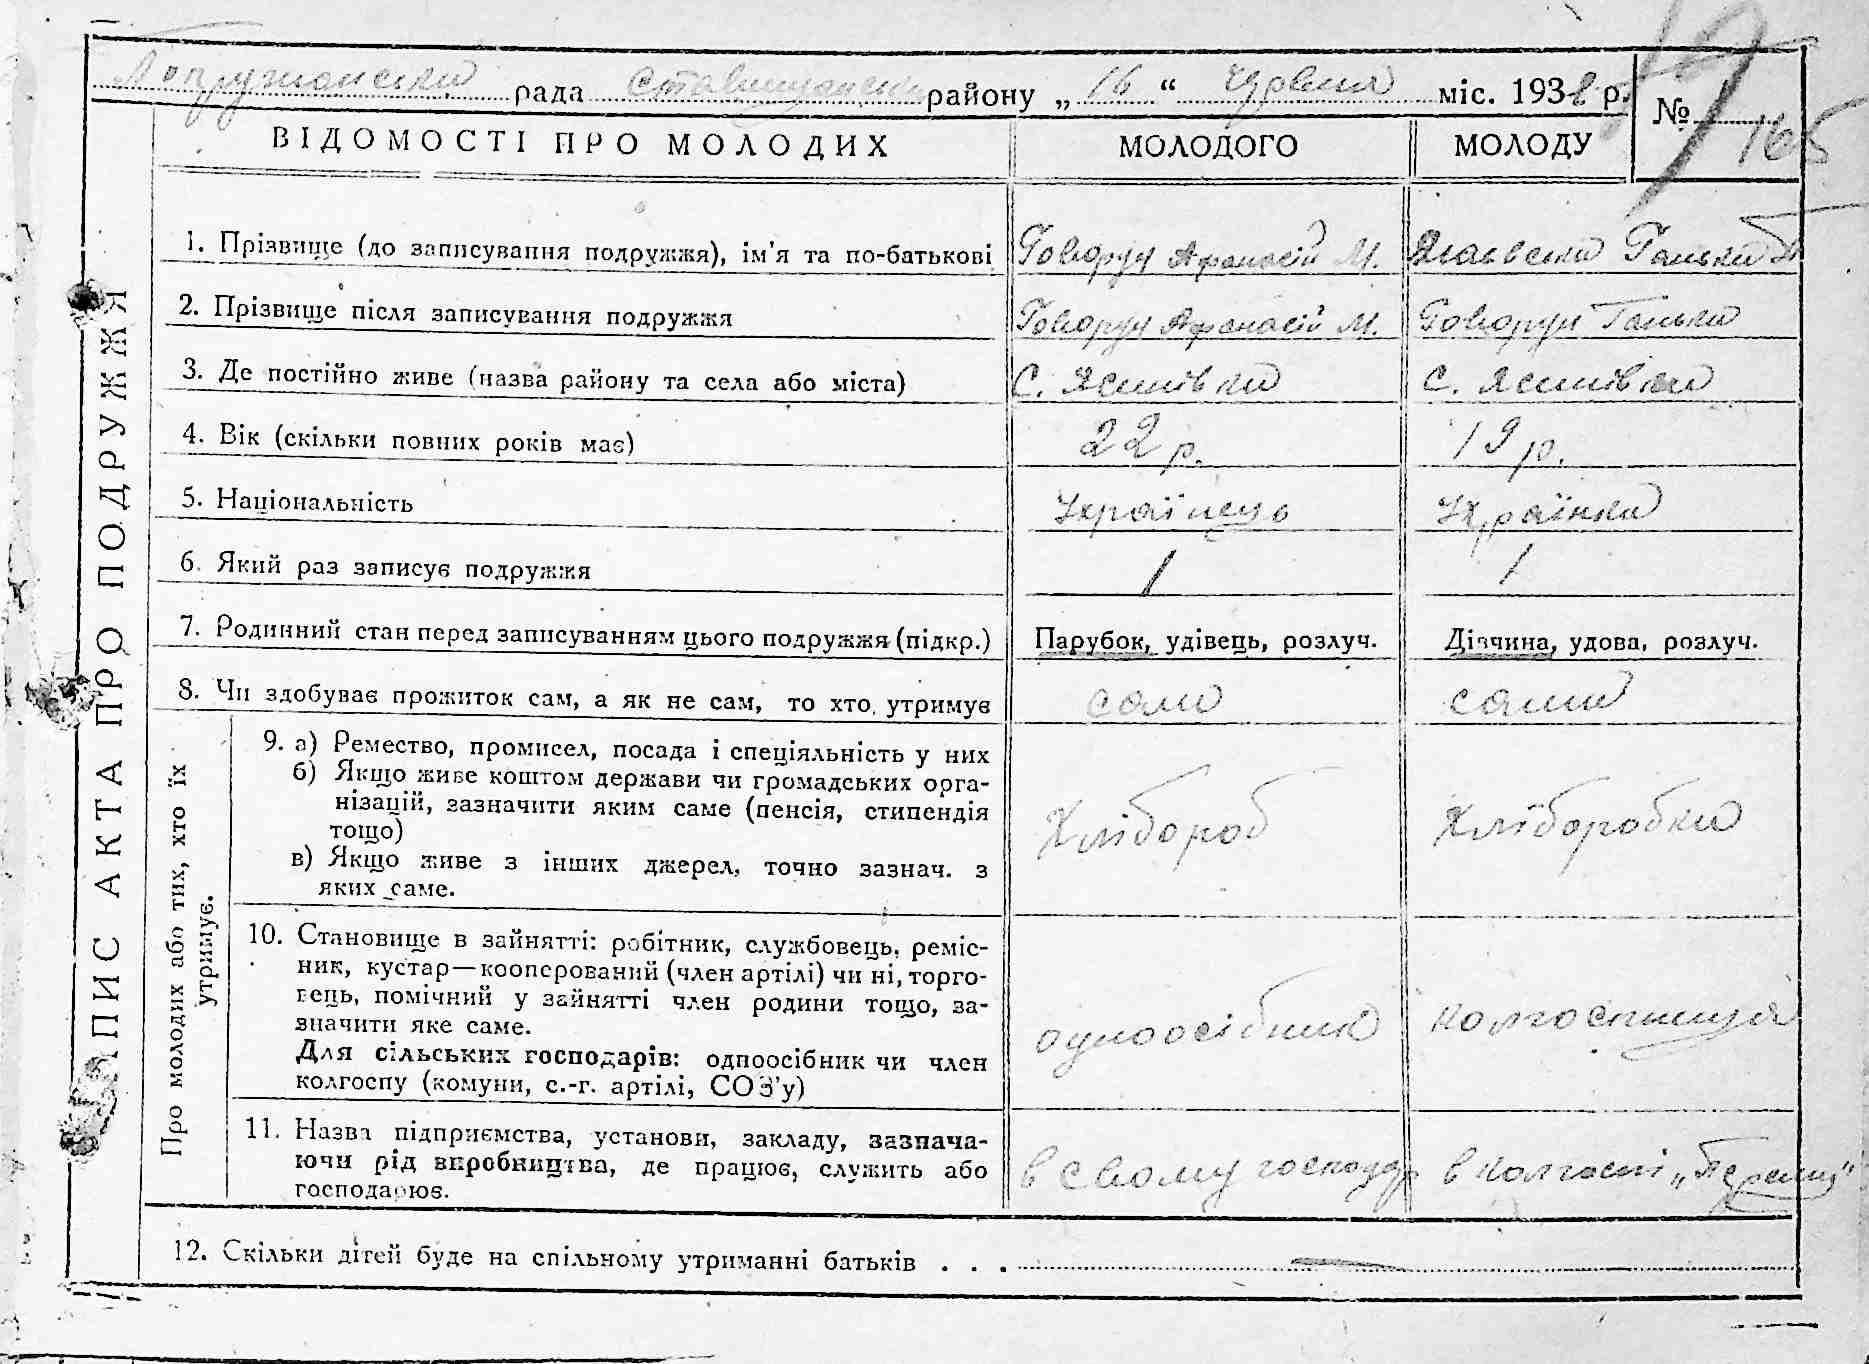 Попружанська рада Ставищанськ району „ 16 “ Червня міс. 193 р. №
165
ВІДОМОСТІ ПРО МОЛОДИХ МОЛОДОГО МОЛОДУ
ЗАПИС АКТА ПРО ПОДРУЖЖЯ
1. Прізвище (до записування подружжя), ім'я та по-батькові Говорун Афанасій М. Ганька
2. Прізвище після записування подружжя Говорун Афанасій М. Говорун Ганька
3. Де постійно живе (назва району та села або міста) С. Ясинівка С. Ясинівка
4. Вік (скільки повних років має) 22 р. 19 р.
5. Національність Українець Українка
6. Який раз записує подружжя 1 1
7. Родинний стан перед записуванням цього подружжя (підкр.) Парубок, удівець, розлуч. Дівчина, удова, розлуч.
8. Чи здобуває прожиток сам, а як не сам, то хто утримує сам сама
Про молодих або тих, хто їх
утримує.
9. а) Ремество, промисел, посада і спеціяльність у них
б) Якщо живе коштом держави чи громадських орга-
нізацій, зазначити яким саме (пенсія, стипендія
тощо)
в) Якщо живе з інших джерел, точно зазнач. з
яких саме.
Хлібороб Хліборобка
10. Становище в зайнятті: робітник, службовець, реміс-
ник, кустар—кооперований (член артілі) чи ні, торго-
вець, помічний у зайнятті член родини тощо, за-
значити яке саме.
Для сільських господарів: одноосібник чи член
колгоспу (комуни, с.-г. артілі, СОЗ'у)
одноосібник колгоспниця
11. Назва підприємства, установи, закладу, зазнача-
ючи рід виробництва, де працює, служить або
господарює.
в свому господар в колгоспі
12. Скільки дітей буде на спільному утриманні батьків . . . —